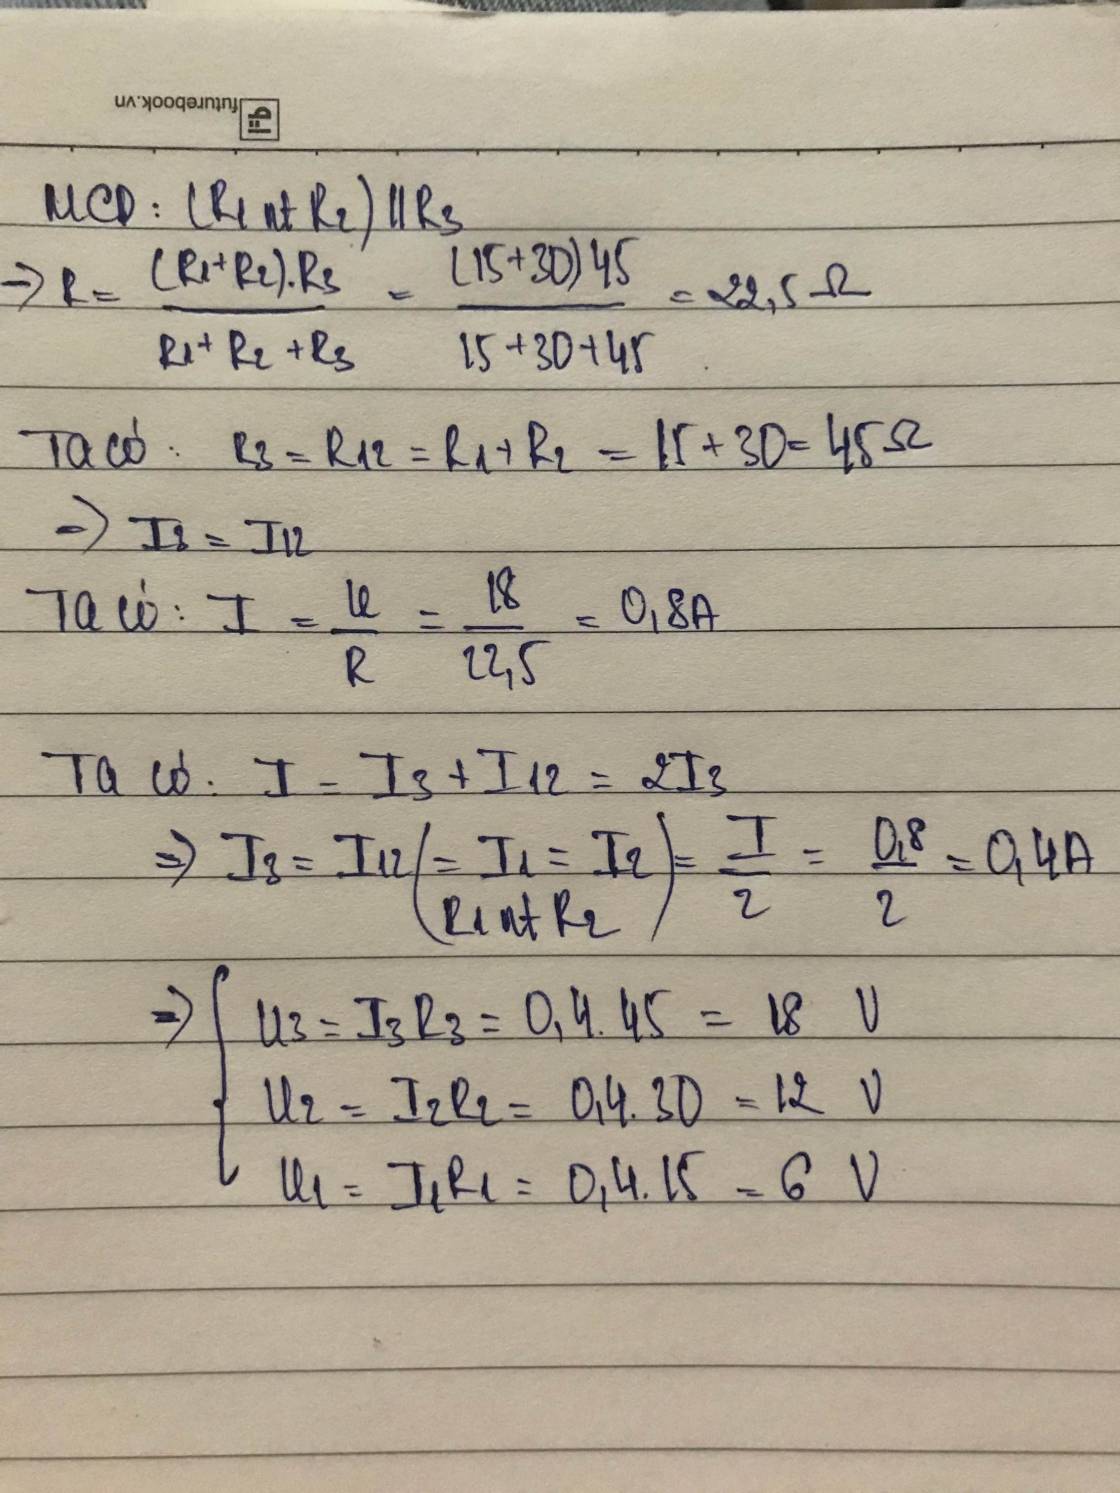 futurebook.vn
MCD: (R1 nt R2) // R3
=> R = (R1+R2).R3 / R1+R2+R3 = (15+30)45 / 15+30+45 = 22,5 Ω
Ta có: R3 = R12 = R1+R2 = 15+30 = 45Ω
=> I3 = I12
Ta có: I = U/R = 18/22,5 = 0,8A
Ta có: I = I3 + I12 = 2I3
=> I3 = I12 (= I1 = I2) = I/2 = 0,8/2 = 0,4A
R1 nt R2
=> { U3 = I3R3 = 0,4.45 = 18 V
U2 = I2R2 = 0,4.30 = 12 V
U1 = I1R1 = 0,4.15 = 6 V